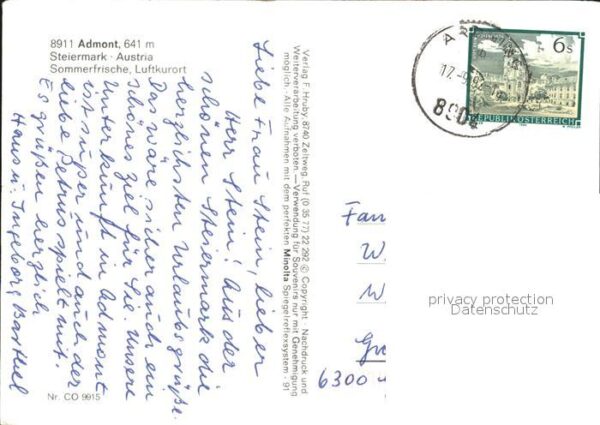 8911 Admont, 641 m
Steiermark · Austria
Sommerfrische, Luftkurort
Liebe Frau Stein, lieber
Herr Stein! Aus der
schönen Steiermark die
herzlichsten Urlaubsgrüße.
Das wäre sicher auch ein
schönes Ziel für Sie. Unsere
Unterkunft in Admont
ist super und auch der
liebe Petrus spielt mit.
Es grüßen herzlich
Hans u. Ingeborg
Nr. CO 9915
Verlag F. Hruby, 8740 Zeltweg, Ruf (0 35 77) 22 292 © Copyright · Nachdruck und
Weiterverarbeitung verboten — Verwendung für Souvenirs nur mit Genehmigung
möglich. · Alle Aufnahmen mit dem perfekten Minolta Spiegelreflexsystem · 91
6 S
REPUBLIK ÖSTERREICH
17.
890
Fam
W
W
6300
privacy protection
Datenschutz